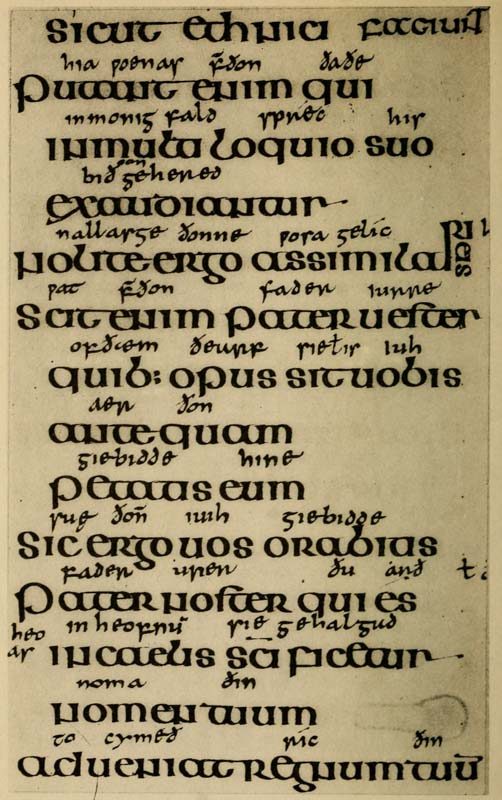 sicut ethnici faciunt
hia poenas f̄ðon ðaðe
Putant enim qui
in monig fald spréc his
in multiloquio suo
bið gehered
exaudiantur
nallas ge ðonne gelic
nolite ergo assimilari eis
wat f̄ðon fader iurre
Scit enim pater uester
ðeurf sie ł is iuh
quib; opus sit uobis
aer ðon
ante quam
giebidde hine
petatis eum
ðoñ iuih giebidde
Sic ergo uos orabitis
fader urer ðu arð ł
Pater noster qui es
in heofnū sie gehalgud
in caelis sc̄ificetur
noma ðin
nomen tuum
to cymeð ric ðin
adueniat regnum tuū